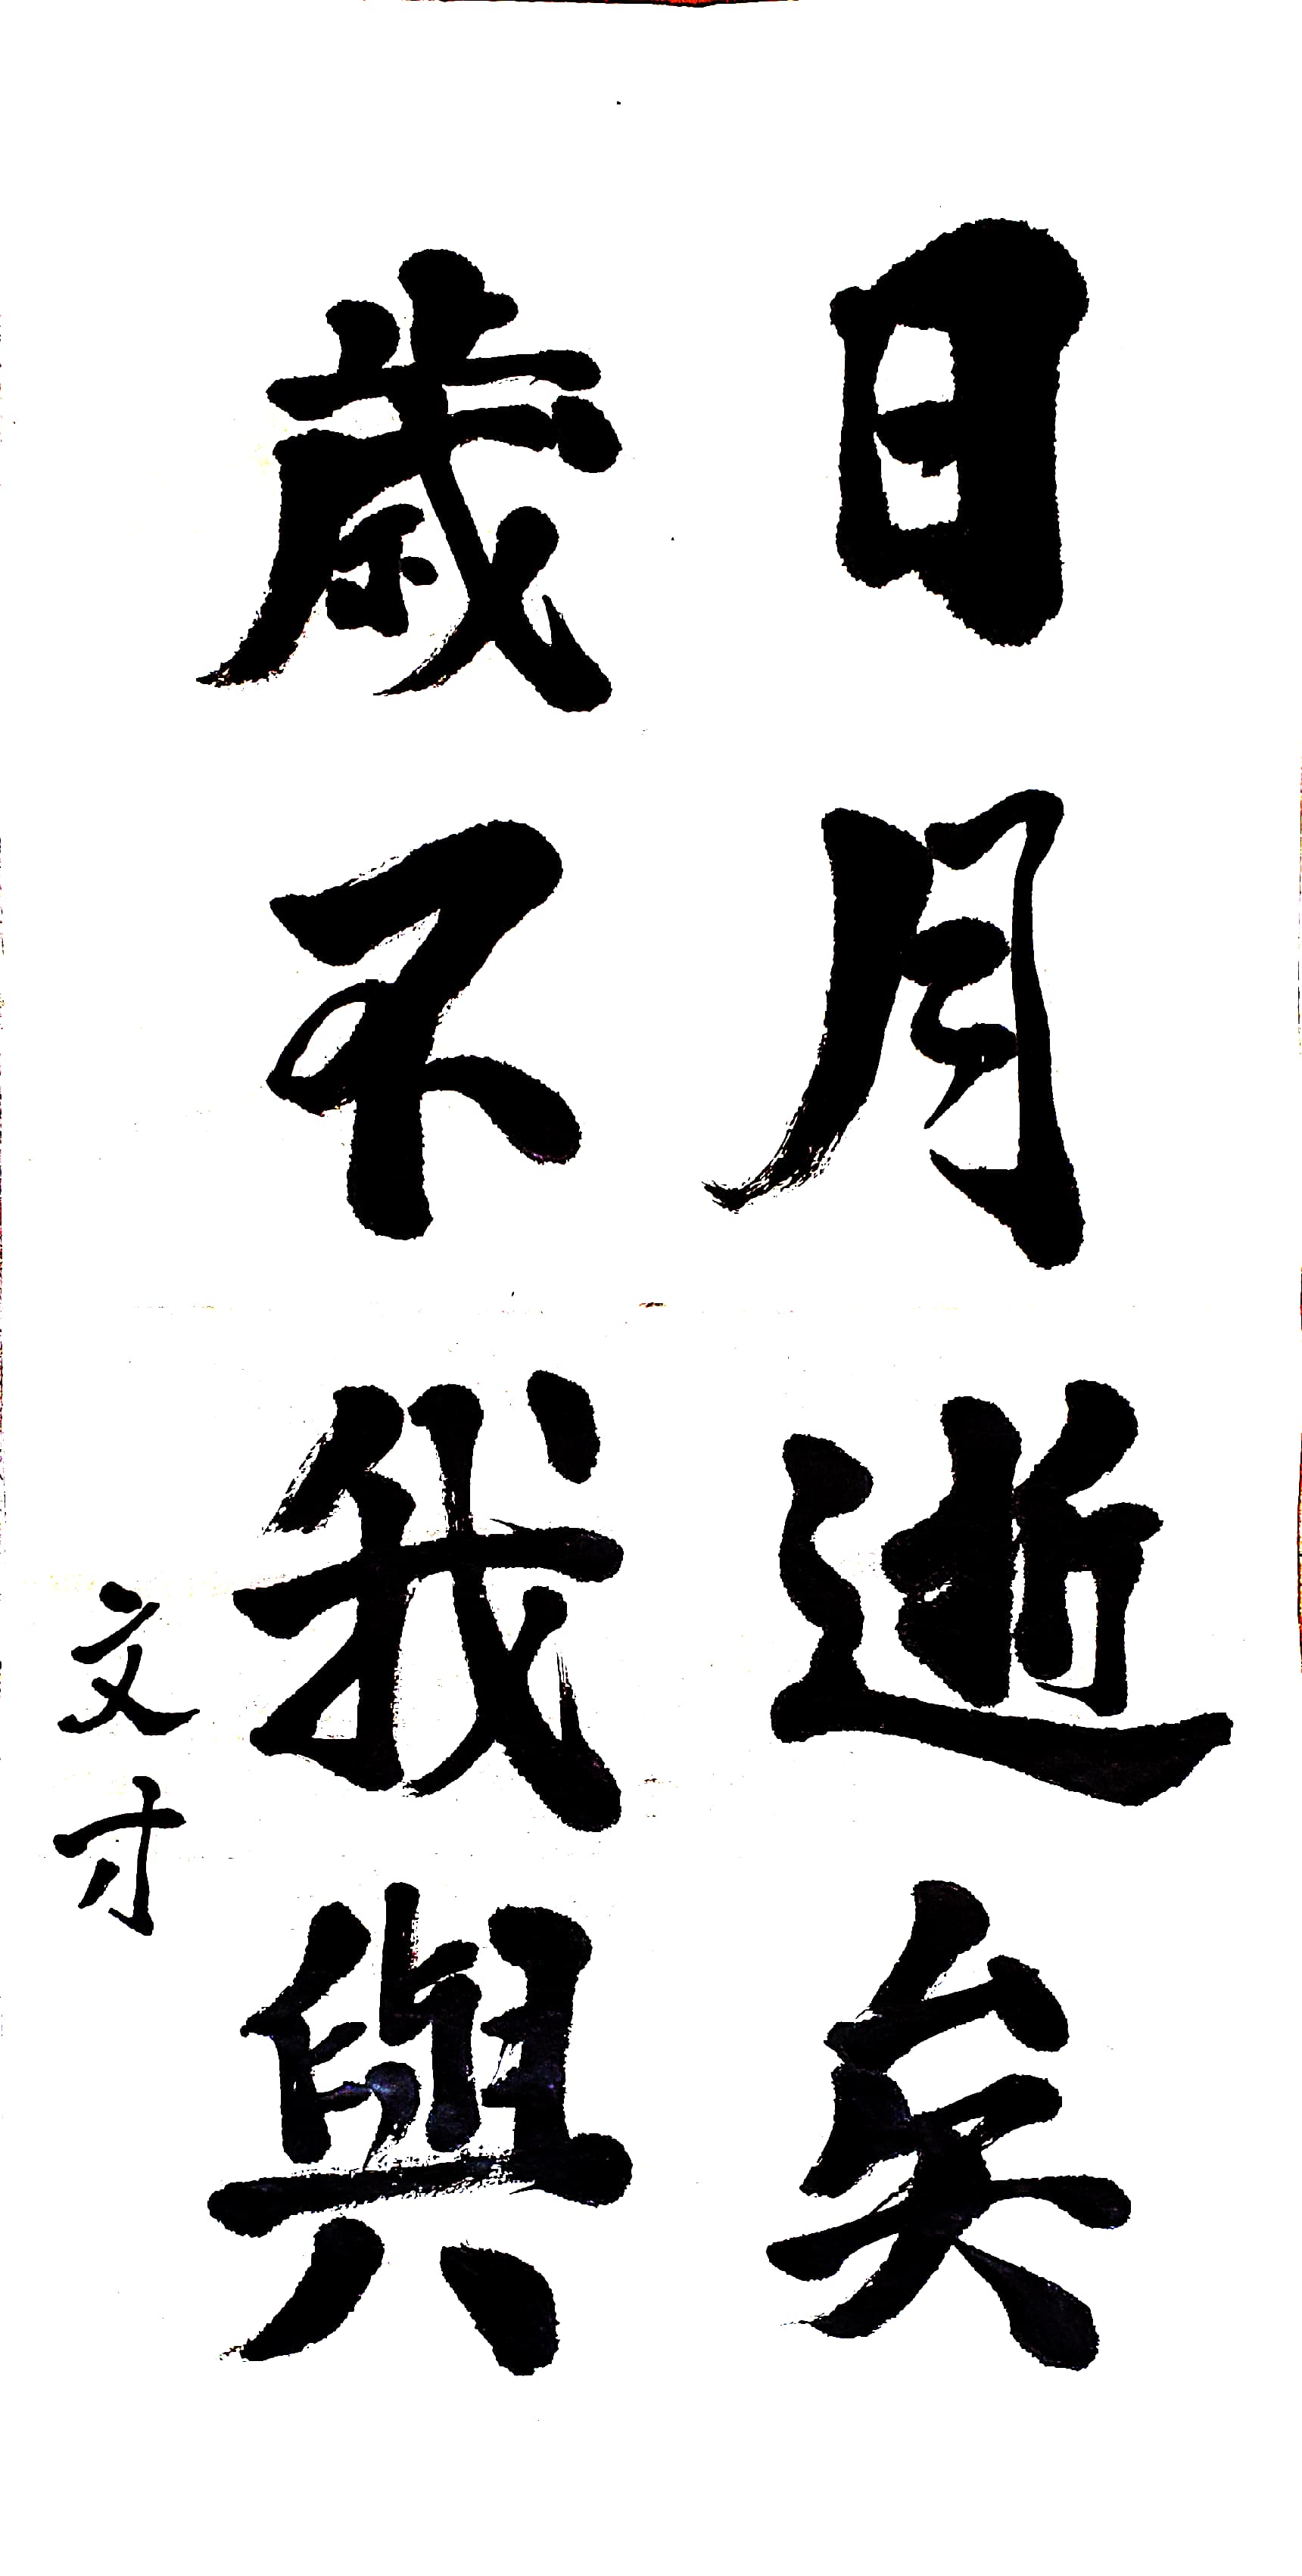 日月逝矣
歲不我與
文才